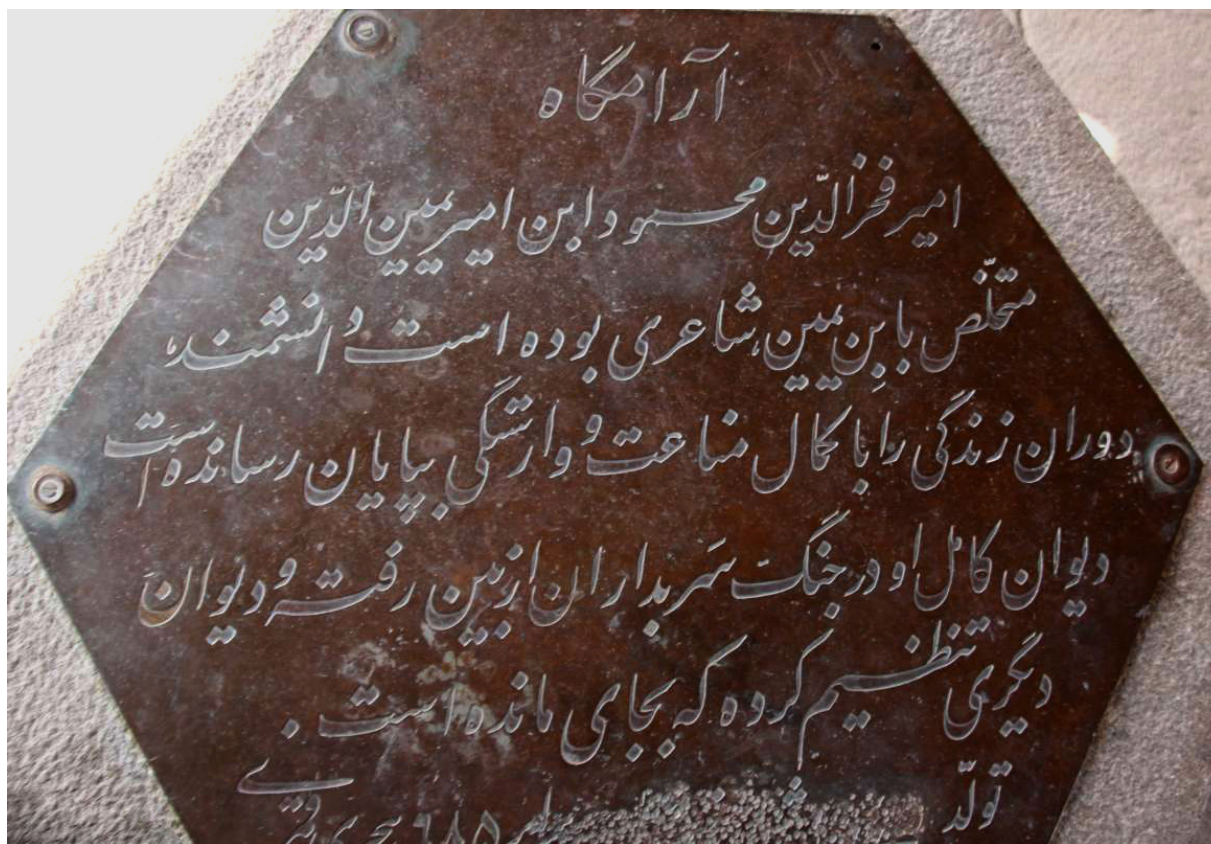 آرامگاه
امیر فخرالدّین محمود ابن امیر یمین الدّین
متخلّص بابنِ یمین، شاعری بوده است دانشمند،
دوران زندگی را با کمال مناعت و وارستگی بپایان رسانده است
دیوان کامل او در جنگ سَربداران از بین رفته و دیوان
دیگری تنظیم کرده که بجای مانده است.
تولّد ۶۸۵ هجری